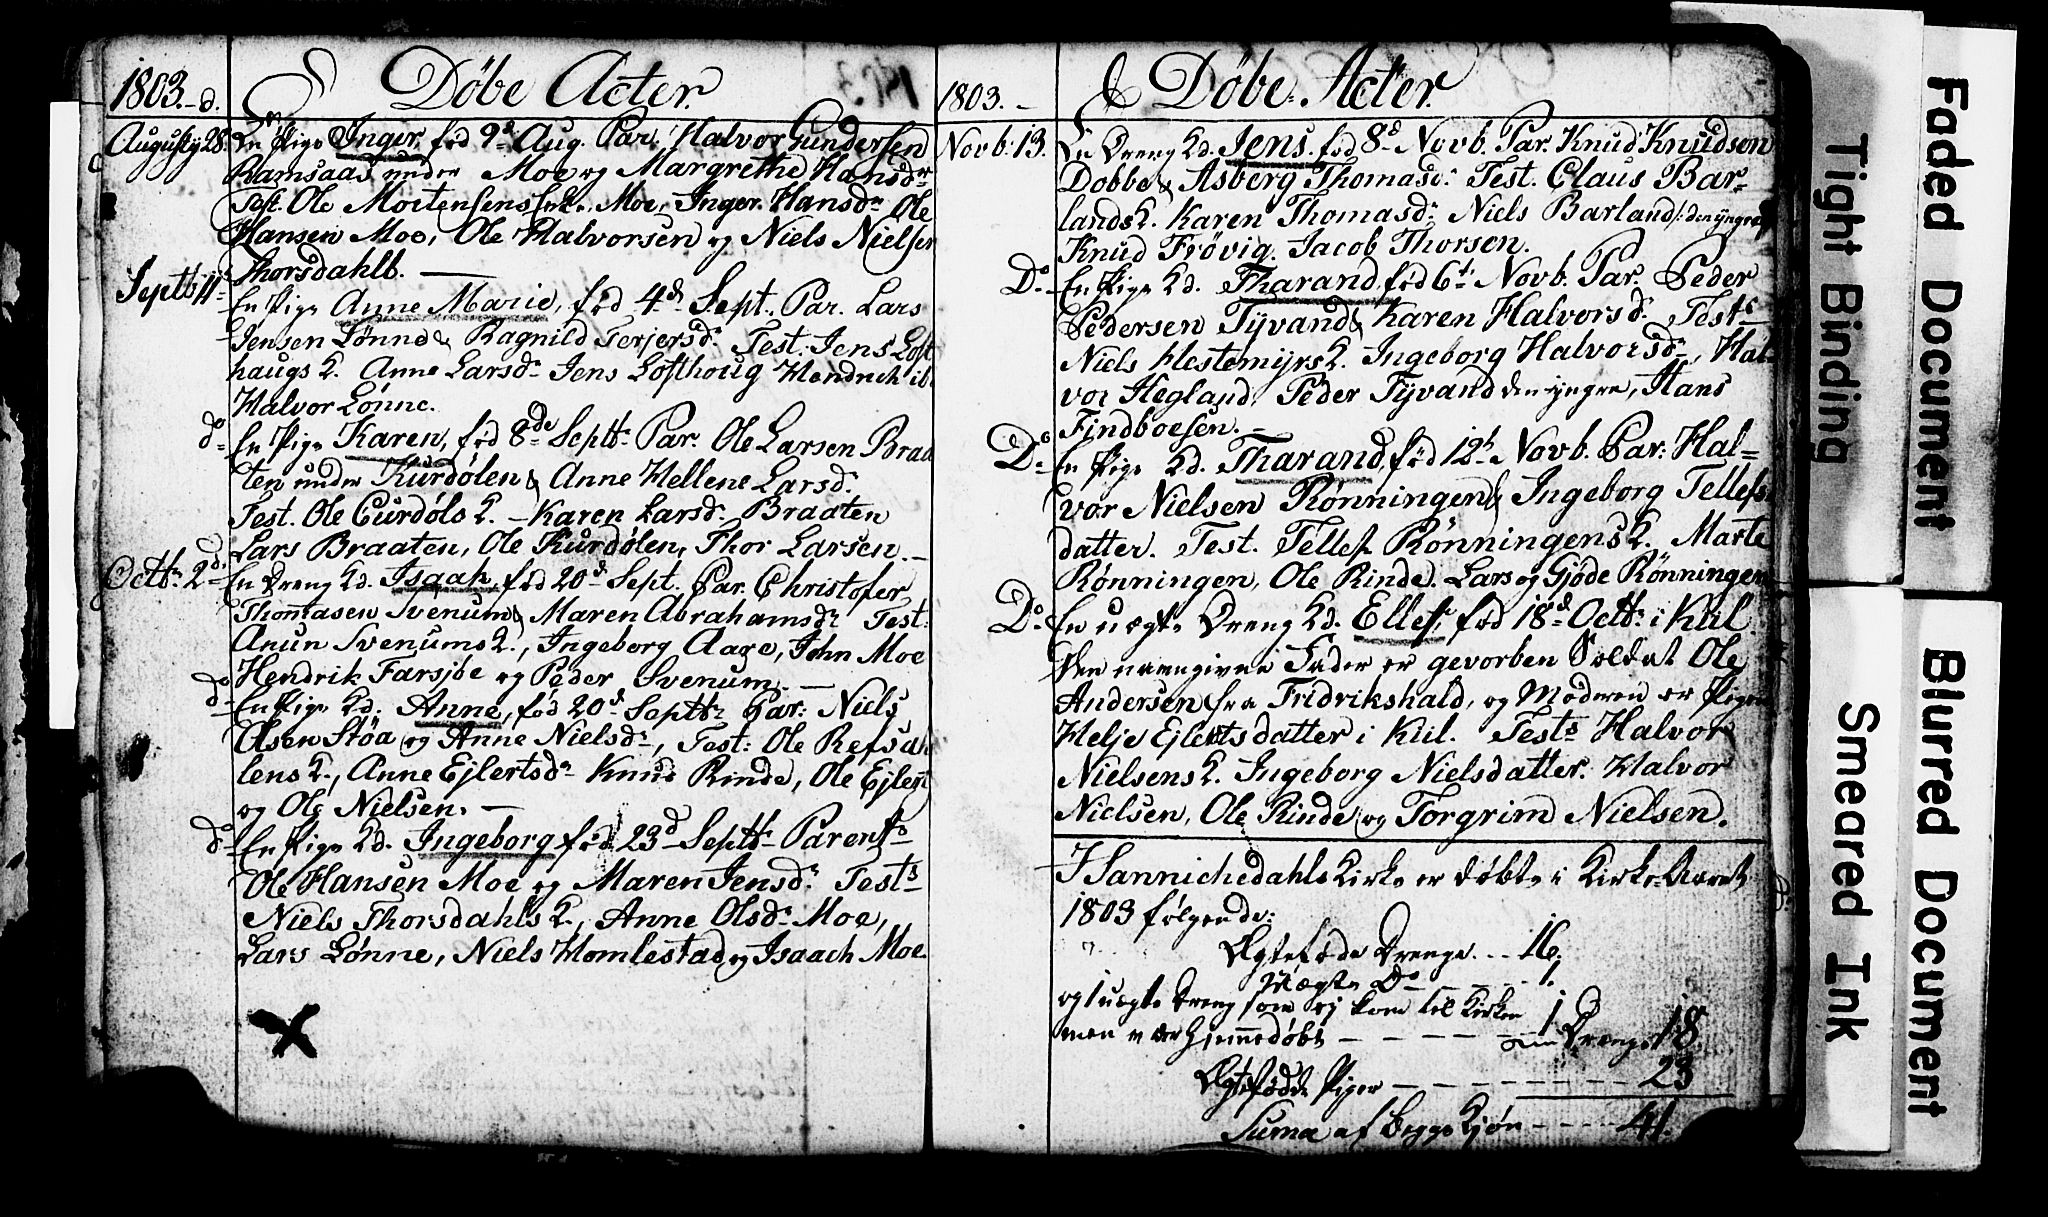 1803.-d.
Døbe Acter.
Augusty 28.
En Pige Inger, fød 9d Aug. Par. Halvor Gundersen
Ramsaas under Moe og Margrethe Hansdr
Test. Ole Mortensens Moe, Inger Hansdr Ole
Hansen Moe, Ole Halvorsen og Niels Nielsen
Thorsdahls.
Septb 11.
En Pige Anne Marie, fød 4d Sept. Par. Lars
Jensen Lønne & Ragnild Terjersdr Test. Jens Loft
haugs K. Anne Larsdr Jens Lofthoug Hendrich ib.
Halvor Lønne.
do
En Pige Karen, fød 8de Septbr Par. Ole Larsen Braa
ten under Kurdølen & Anne Hellene Larsd.
Test. Ole Curdøls K. - Karen Larsdr Braaten
Lars Braaten, Ole Kurdølen, Thor Larsen. -
Octbr 2d.
En Dreng kd. Isaak, fød 20d Sept. Par. Christofer
Thommasen Svenum & Maren Abrahamsdr Test.
Anun Svenums K., Ingeborg Aase, John Moe
Hendrik Farsjøe og Peder Svenum. -
do
En Pige kd. Anne, fød 20d Septbr Par: Niels
Olsen Støa og Anne Nielsdr, Test: Ole Refsah
lens K., Anne Ejlertsdr Knud Rinde, Ole Ejlert
og Ole Nielsen. -
do
En Pige kd. Ingeborg fød 23d Septbr Parents
Ole Hansen Moe og Maren Jensdr Tests
Niels Thorsdahls K., Anne Olsdr Moe,
Lars Lønne, Niels Homlestad og Isaach Moe.
1803. -
Døbe Acter.
Novb: 13.
En Dreng kd. Jens. fød 8d Novb. Par. Knud Knudson
Dobbe & Asberg Thomasdr Test. Claus Bar-
lands K. Karen Thomasdr Niels Barland /: den yngre
Knud Frøvig. Jacob Thorsen.
Do
En Pige kd. Tharand, fød 6t Novb. Par. Peder
Pedersen Tyvand & Karen Halvorsdr Tests
Niels Hestemyrs K. Ingeborg Halvorsdr, Hal-
vor Hegland, Peder Tyvand den yngre, Hans
Findboesen. -
Do
En Pige kd. Tharand, fød 12t Novb. Par: Hal-
vor Nielsen Rønningen & Ingeborg Tellefs
datter. Test. Tellef Rønningens K. Marte
Rønningen, Ole Rinde. Lars og Gjøde Rønningen
Do
En uægte Dreng kd. Ellef, fød 18d Octbr i Kiil.
Den navngivne Fader er gevorben Soldat Ole
Andersen fra Fridrikshald, og Moderen er Pigen
Helje Ejlertsdatter i Kiil. Tests Halvor
Nielsens K. Ingeborg Nielsdatter. Halvor
Nielsen, Ole Rinde og Torgrim Nielsen.
I Sannichedahls Kirke er døbte i Kirke-Aaret
1803 følgende:
Ægtefødde Drenge ... 16.
Uægte Do - - - - 1.
og 1 uægte Dreng som ej kom til Kirken
men var hjemmedøbt - - - - 1
Drenge 18
Ægtefødde Piger - - - - - - - - 23
Suma af begge Kjøn - - - - 41.
Faded Document
Tight Binding
Blurred Document
Smeared Ink